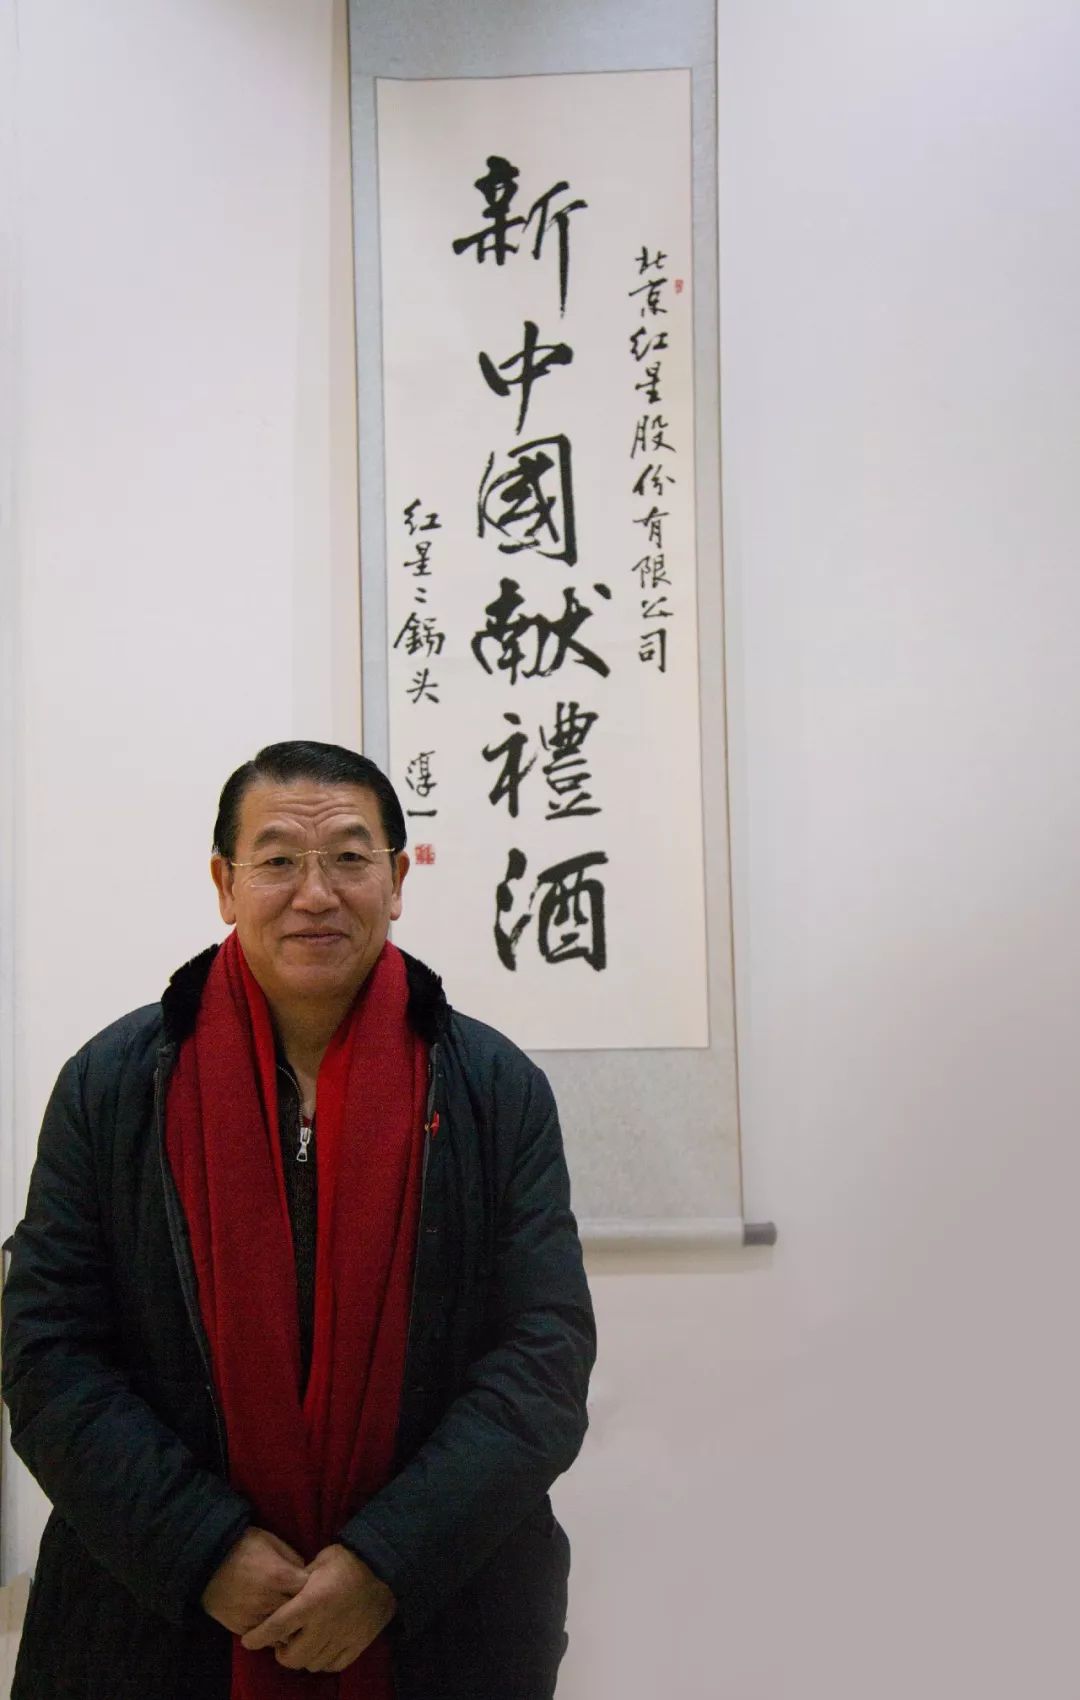 北京红星股份有限公司
新中國献禮酒
红星二锅头
淳一